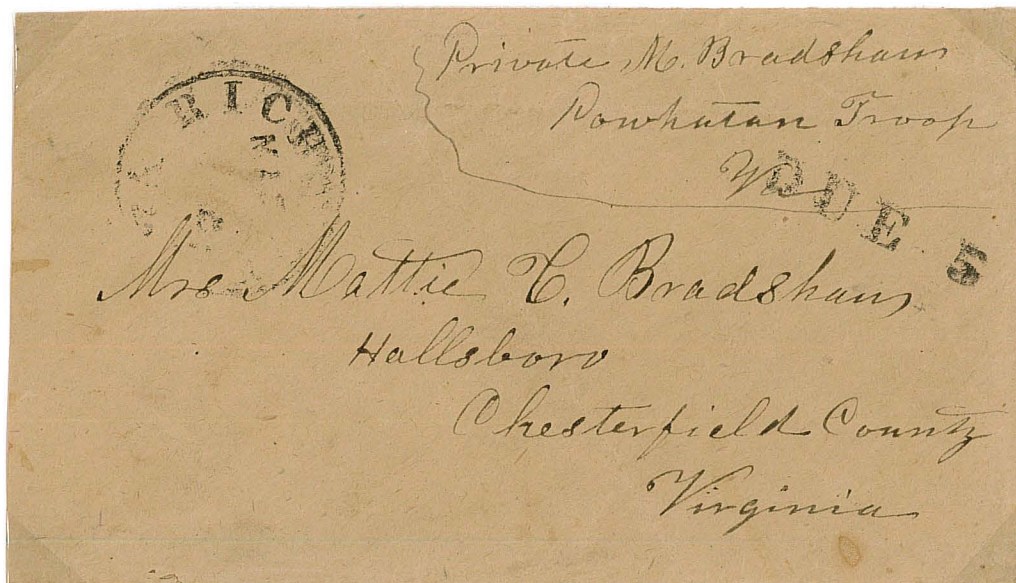 Private M. Bradshaw
Powhatan Troop
Va
DUE 5
RICH
VA
Mrs Mattie C. Bradshaw
Hallsboro
Chesterfield County
Virginia